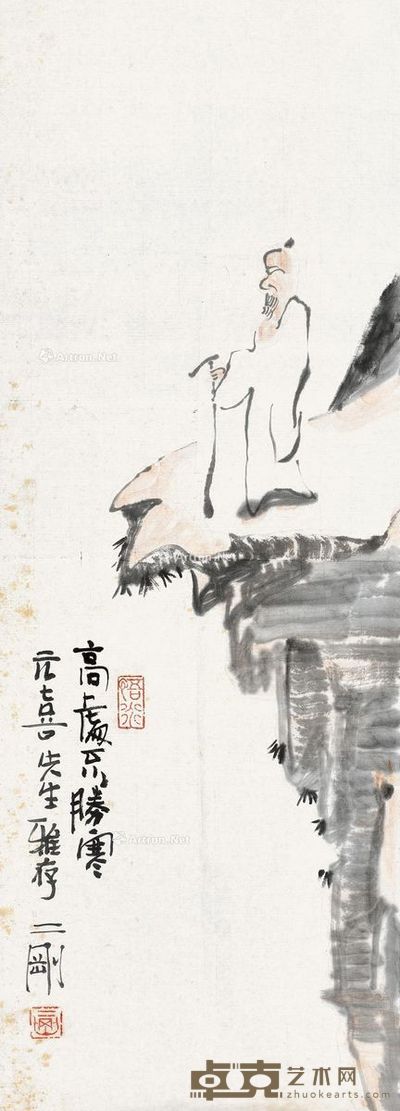 高處不勝寒
元喜先生雅存 二剛
Artron.Net
Artron.Net
卓克艺术网
zhuokearts.com